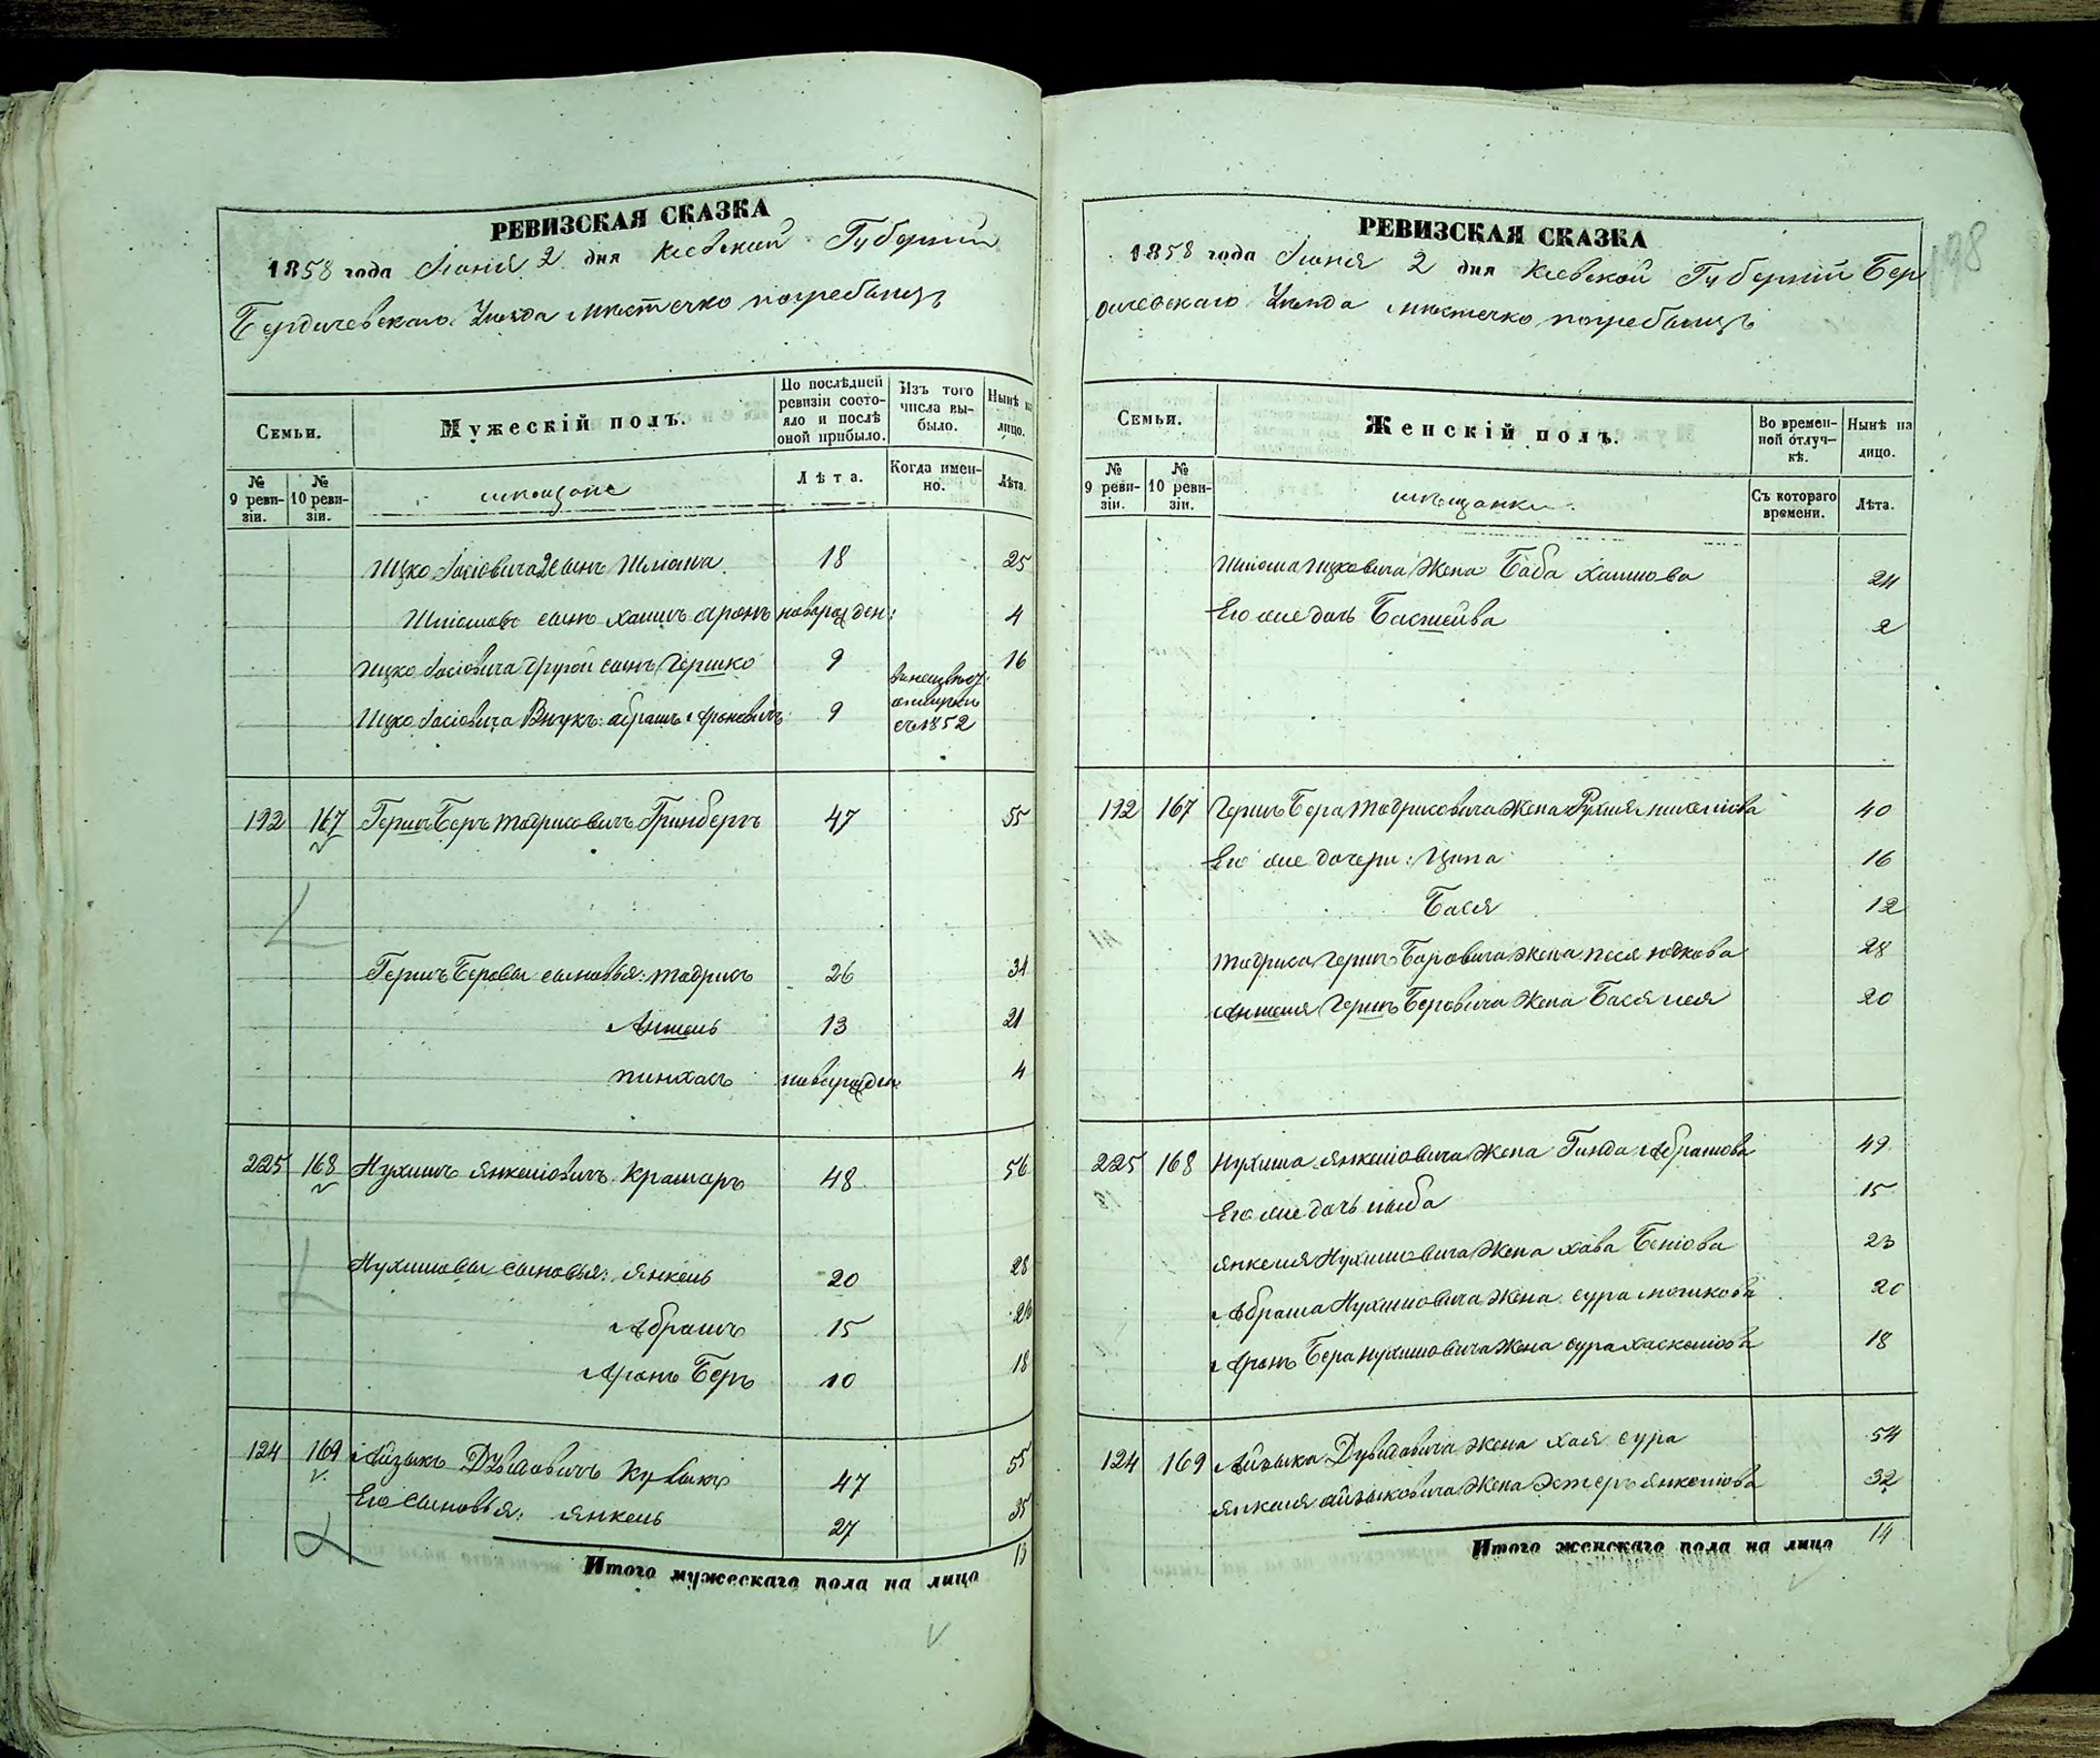 РЕВИЗСКАЯ СКАЗКА
1858 года Іюня 2 дня Кіевской Губерніи
Бердичевскаго Уѣзда мѣстечко погребищь
Семьи.
Мужескій полъ.
По послѣдней ревизіи состояло и послѣ оной прибыло.
Изъ того числа выбыло.
Нынѣ на лицо.
№ 9 ревизіи.
№ 10 ревизіи.
мѣщане
Лѣта.
Когда именно.
Лѣта.
Ицко Іосіовича 2й сынъ Шліома 18 25
Шліомовъ сынъ хаимъ аронъ новорожден: 4
Ицко Іосіовича другой сынъ Гершко 9 16
Ицко Іосіовича Внукъ: абрамъ Ароновичъ 9
съ 1852
192 167 Гершъ Беръ Модриковичъ Гринбергъ 47 55
Гершъ Беровы сыновья: модрикъ 26 34
Аншель 13 21
пинхасъ новорожден 4
225 168 Нухимъ Янкеліовичъ Крамаръ 48 56
Нухимовы сыновья: Янкель 20 28
Абрамъ 15 26
Аронъ Беръ 10 18
124 169 Айзыкъ Дувидовичъ 47 55
Его сыновья: Янкель 27 35
Итого мужескаго пола на лицо 13
198
РЕВИЗСКАЯ СКАЗКА
1858 года Іюня 2 дня Кіевской Губерніи Бер
дичевскаго Уѣзда мѣстечко погребищь
Семьи.
Женскій полъ.
Во временной отлучкѣ.
Нынѣ на лицо.
№ 9 ревизіи.
№ 10 ревизіи.
мѣщанки
Съ котораго времени.
Лѣта.
Шліома Ицковича Жена Баба хаимова 24
Его же дочь Бастейва 2
192 167 Гершъ Бера Модриковича Жена Рухля 40
Его же дочери: Ципа 16
Бася 12
Модрика Гершъ Беровича Жена песя юдкова 28
Аншеля Гершъ Беровича Жена Бася лея 20
225 168 Нухима Янкеліовича Жена Гинда Абрамова 49
Его же дочь либа 15
Янкеля Нухимовича Жена хава Беніова 23
Абрама Нухимовича Жена сура мошкова 20
Аронъ Бера нухимовича Жена сура хаскеліова 18
124 169 Айзыка Дувидовича Жена хая сура 54
Янкеля айзыковича Жена Эстеръ янкеліова 32
Итого женскаго пола на лицо 14